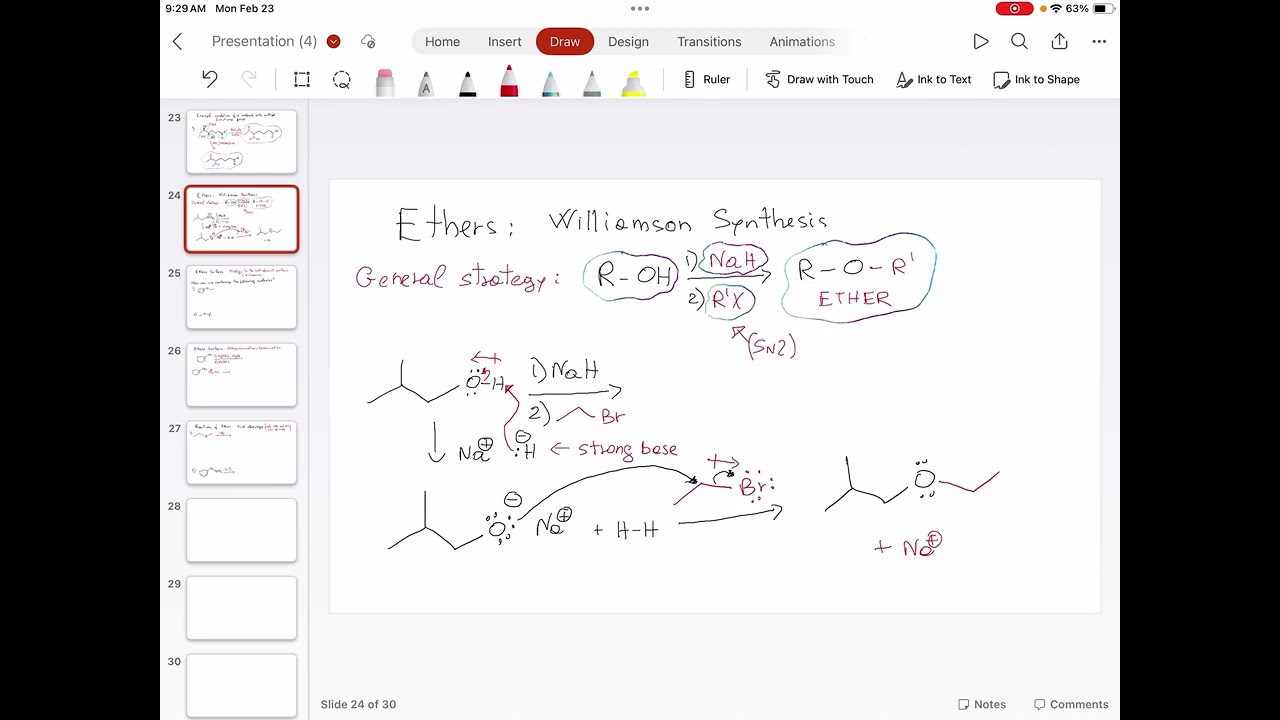 9:29 AM Mon Feb 23
63%
Presentation (4)
Home Insert Draw Design Transitions Animations
Ruler Draw with Touch Ink to Text Ink to Shape
23
24
25
26
27
28
29
30
Ethers: Williamson Synthesis
General strategy: R-OH 1) NaH R-O-R'
2) R'X ETHER
(SN2)
O-H 1) NaH
2) Br
Na⊕ ⊖:H ← strong base
Br
O ⊖ Na⊕ + H-H
O
+ Na⊕
Slide 24 of 30
Notes Comments